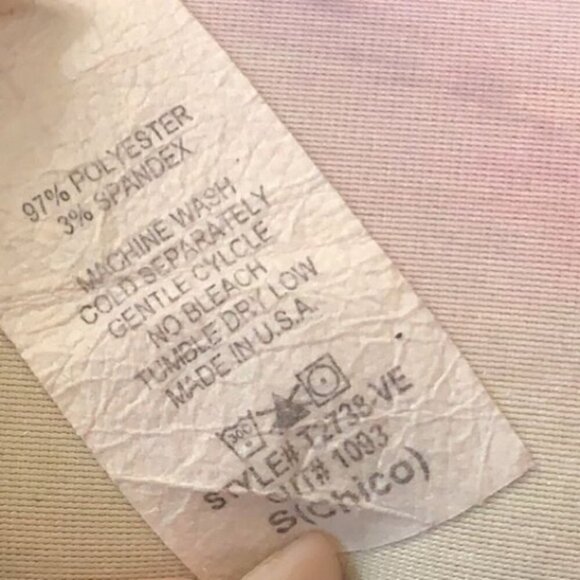 97% POLYESTER
3% SPANDEX
MACHINE WASH
COLD SEPARATELY
GENTLE CYLCLE
NO BLEACH
TUMBLE DRY LOW
MADE IN U.S.A.
30C
STYLE# T2738-VE
CUT# 1093
S(Chico)